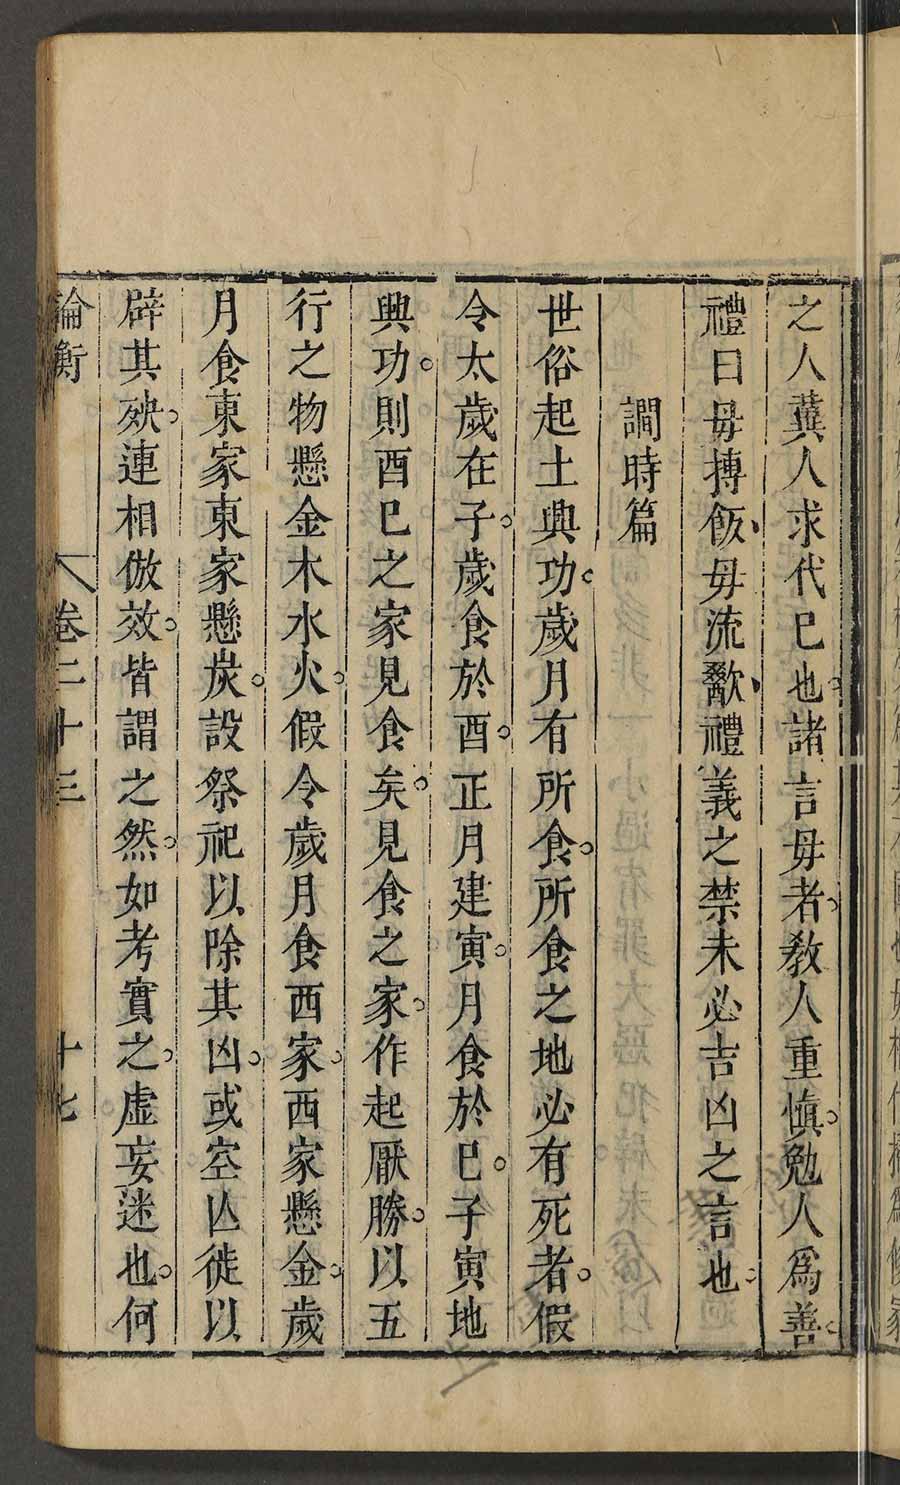 之人冀人求代己也諸言毋者教人重慎勉人爲善
禮曰毋摶飯毋流歠禮義之禁未必吉凶之言也
譋時篇
世俗起土興功歲月有所食所食之地必有死者假
令太歲在子歲食於酉正月建寅月食於巳子寅地
興功則酉巳之家見食矣見食之家作起厭勝以五
行之物懸金木水火假令歲月食西家西家懸金歲
月食東家東家懸炭設祭祀以除其凶或空亾徙以
辟其殃連相倣效皆謂之然如考實之虛妄迷也何
論衡 卷二十三 十七